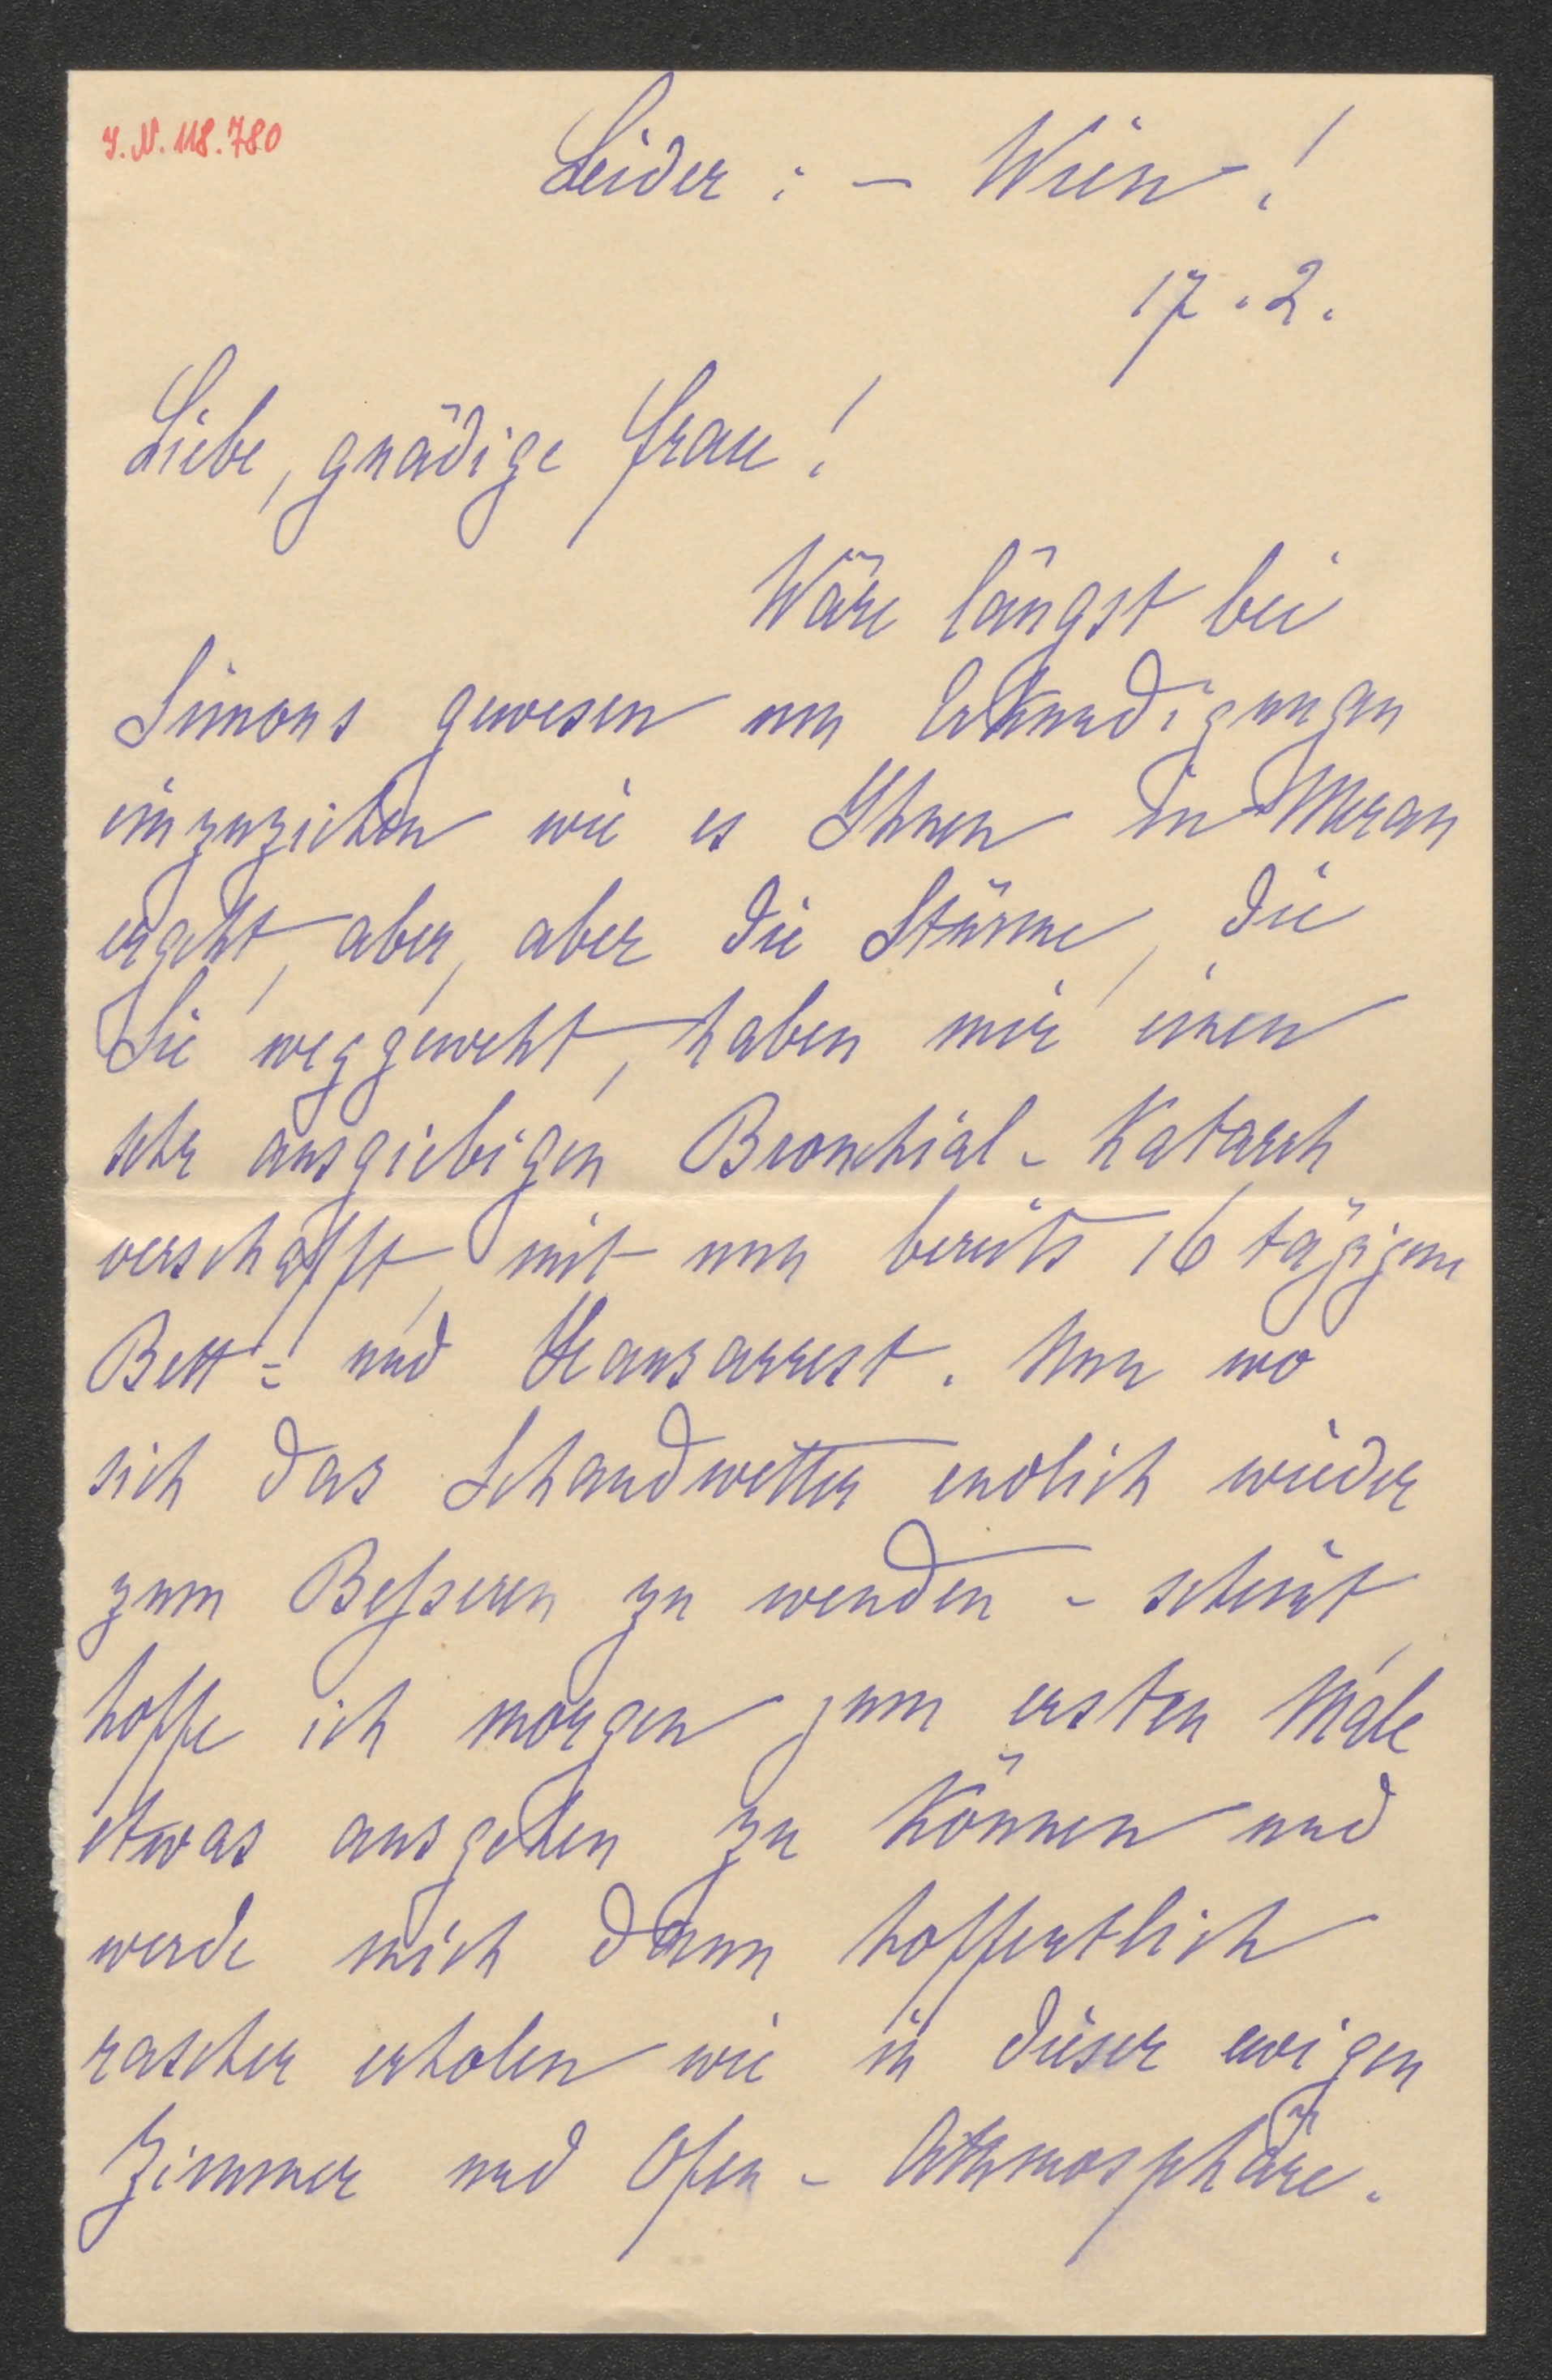 I. N. 118.780
Leider : – Wien !
17. 2.
Liebe, gnädige Frau !
Wäre längst bei
Simons gewesen um Erkundigungen
einzuziehen wie es Ihnen in Meran
ergeht, aber, aber die Stürme, die
Sie weggeweht, haben mir einen
sehr ausgiebigen Bronchial-Katarrh
verschafft, mit nun bereits 16 tägigem
Bett= und Hausarrest. Nun wo
sich das Schandwetter endlich wieder
zum Besseren zu wenden – scheint,
hoffe ich morgen zum ersten Male
etwas ausgehen zu können und
werde mich dann hoffentlich
rascher erholen wie in dieser ewigen
Zimmer und Ofen-Athmosphäre.